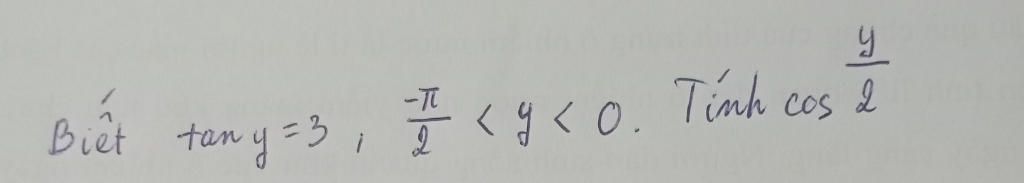 Biết tan y = 3, -π/2 < y < 0. Tính cos y/2